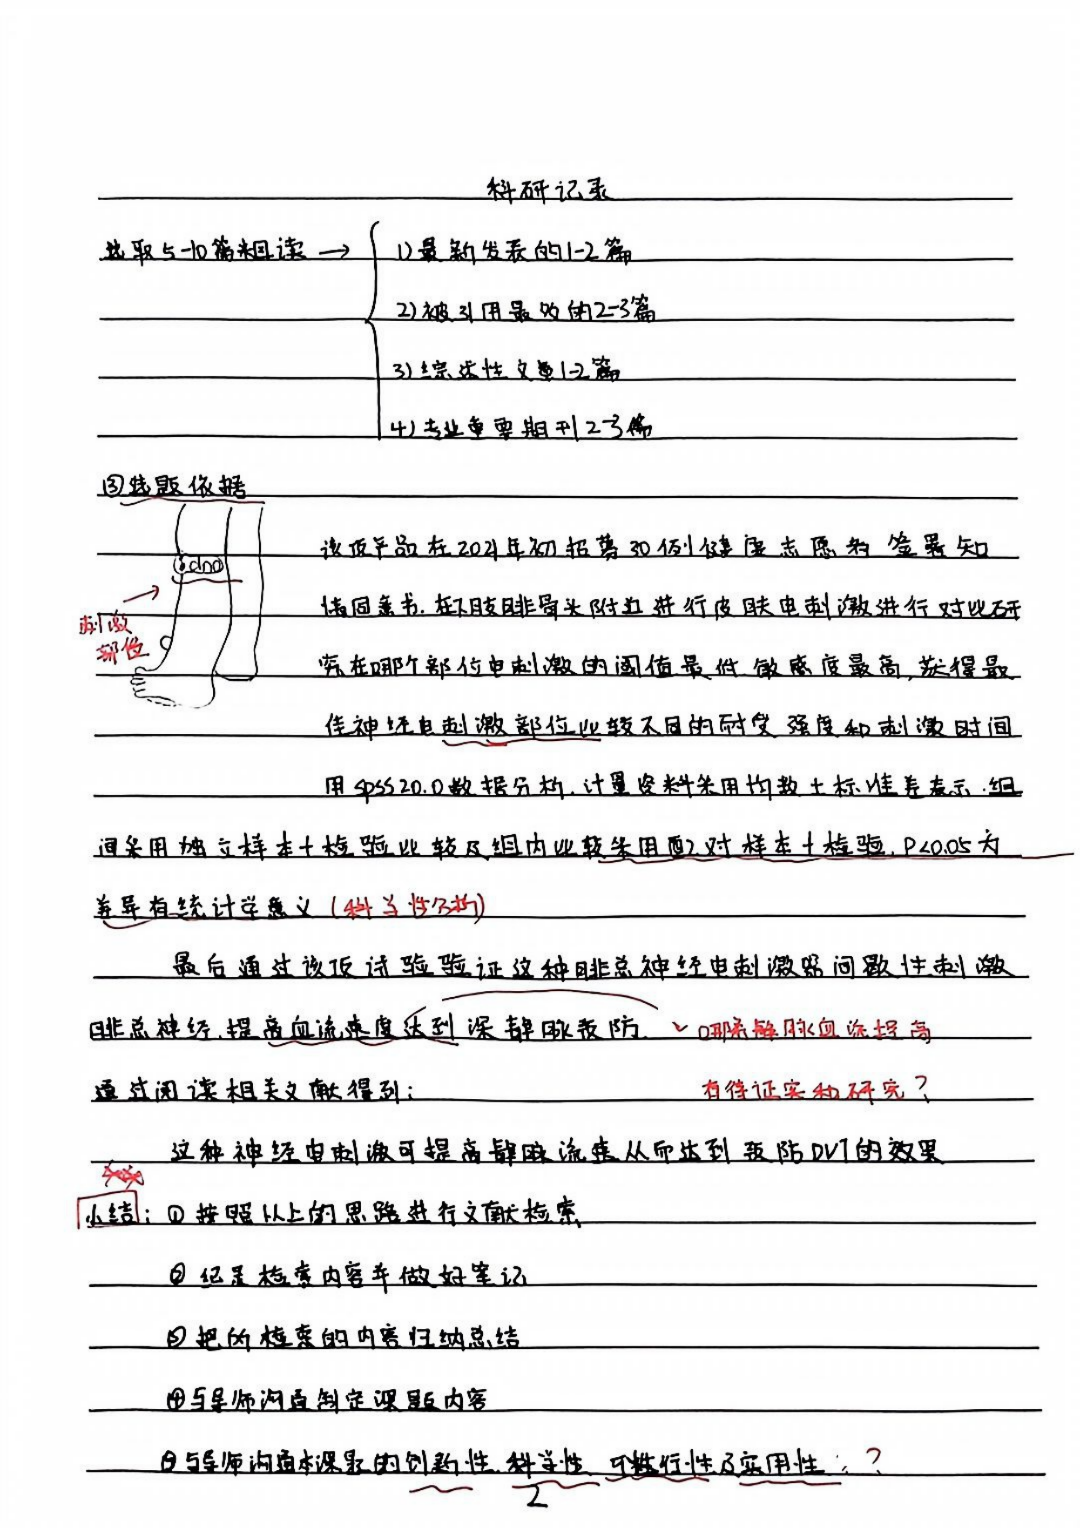 科研记录
选取5-10篇粗读 → 1)最新发表的1-2篇
2)被引用最多的2-3篇
3)综述性文章1-2篇
4)专业重要期刊2-3篇
③选题依据
该项产品在2021年初招募30例健康志愿者签署知
情同意书.在下肢腓骨头附近进行皮肤电刺激进行对比研
究在哪个部位电刺激的阈值最低,敏感度最高,获得最
刺激
部位
佳神经电刺激部位比较不同的耐受强度和刺激时间
用SPSS20.0数据分析.计量资料采用均数±标准差表示.组
间采用独立样本t检验比较及组内比较采用配对样本t检验.P<0.05为
差异有统计学意义(科学性分析)
最后通过该项试验验证这种腓总神经电刺激器间歇性刺激
腓总神经.提高血流速度达到深静脉预防. 哪条静脉血流提高
通过阅读相关文献得到: 有待证实和研究?
这种神经电刺激可提高静脉流速从而达到预防DVT的效果
小结:①按照以上的思路进行文献检索
②纪录检索内容并做好笔记
③把所检索的内容归纳总结
④与导师沟通制定课题内容
⑤与导师沟通本课题的创新性.科学性.可推行性及实用性:?
2